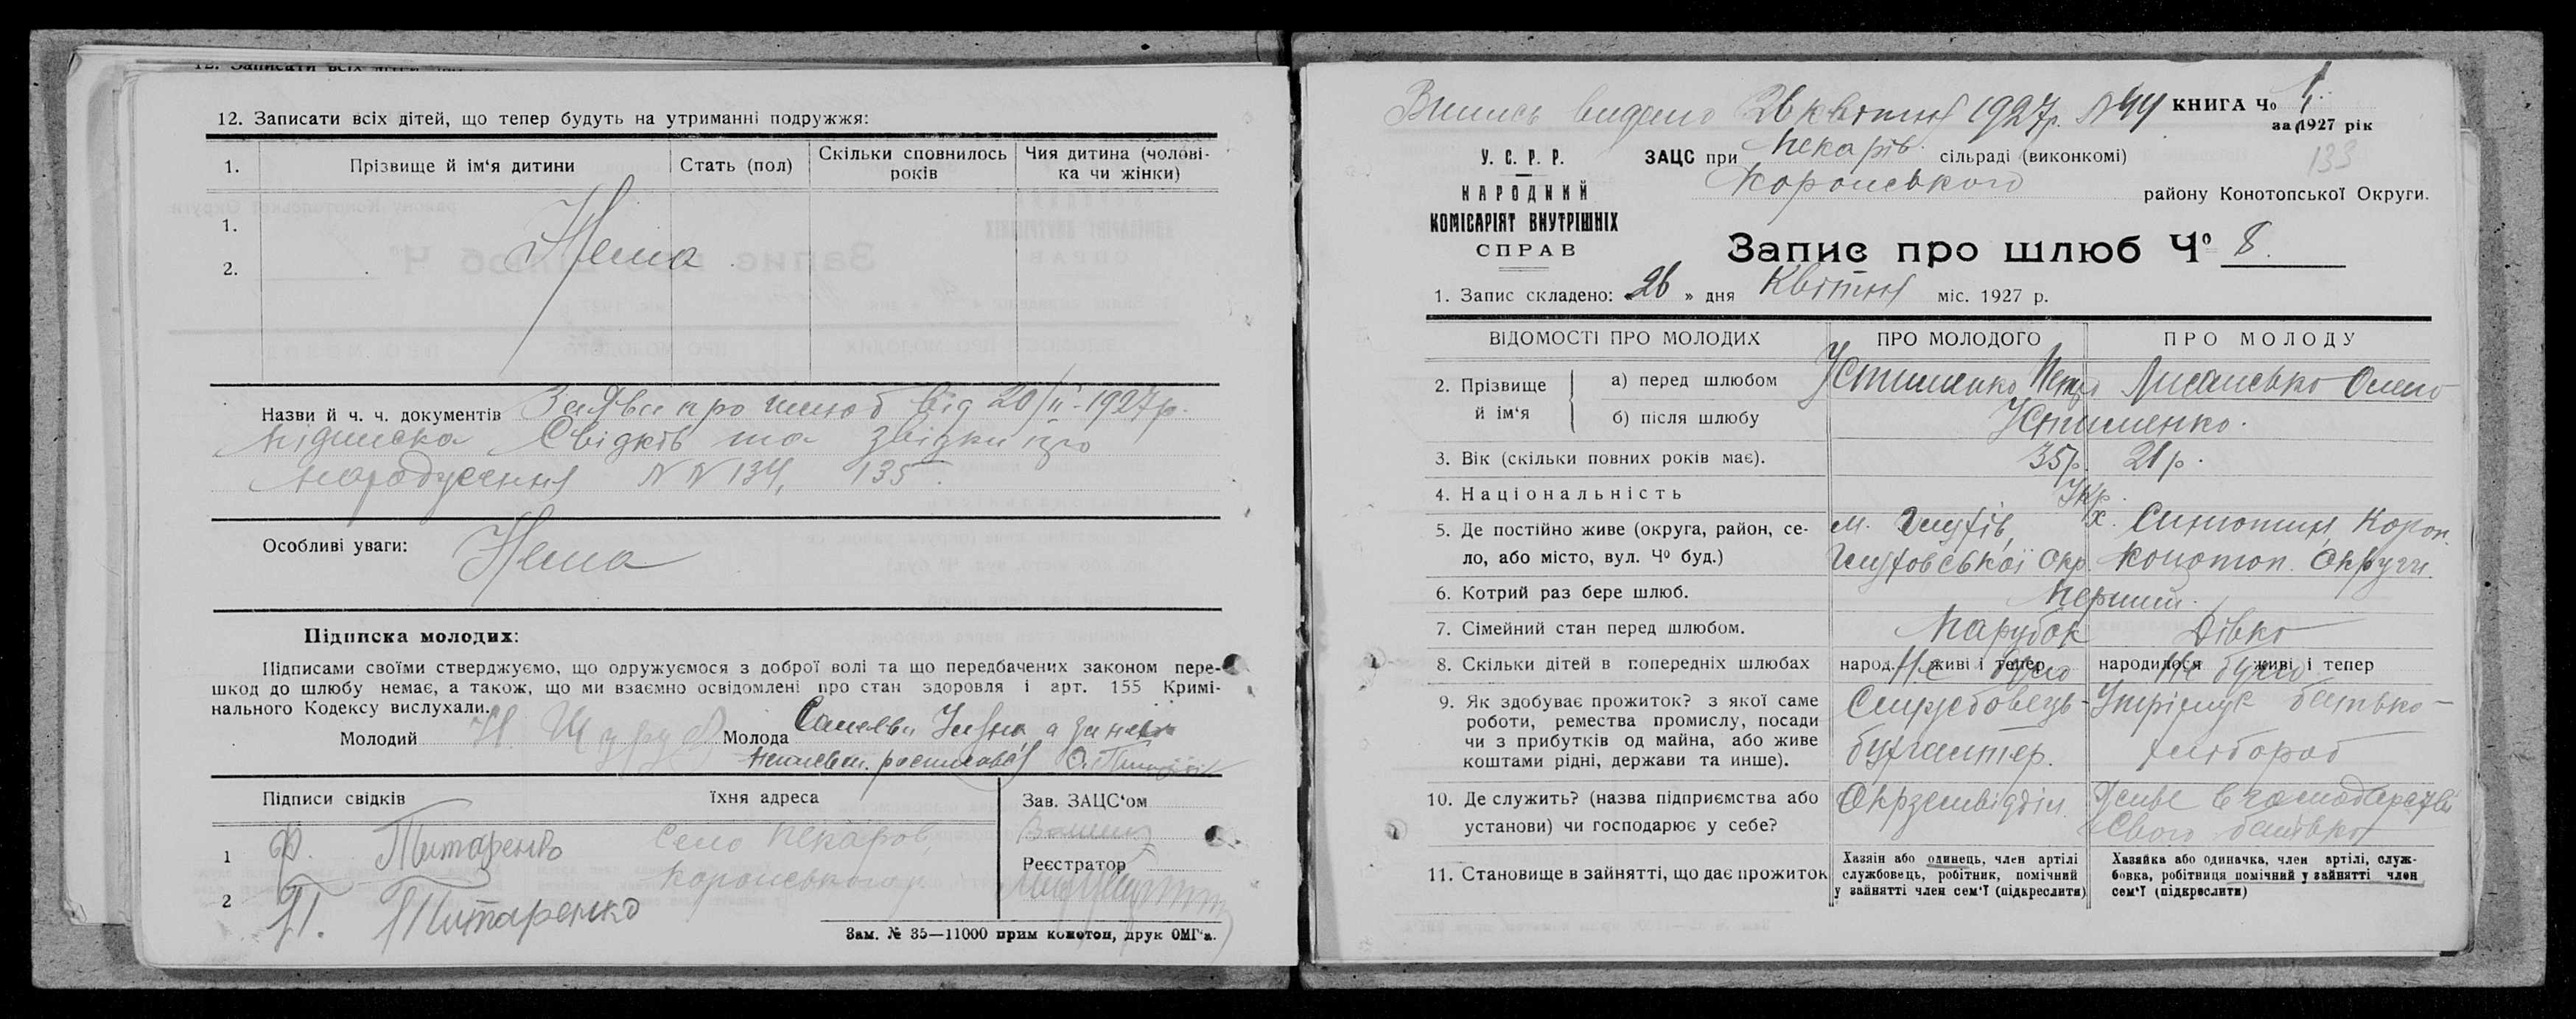 12. Записати всіх дітей, що тепер будуть на утриманні подружжя:
1.
Прізвище й ім‘я дитини
Стать (пол)
Скільки сповнилось років
Чия дитина (чолові-
ка чи жінки)
1.
2.
Нема
Назви й ч. ч. документів Заява про шлюб від 20/II-1927р.
підписка свідків та звідки про
народження NN 134, 135.
Особливі уваги: Нема
Підписка молодих:
Підписами своїми стверджуємо, що одружуємося з доброї волі та що передбачених законом пере-
шкод до шлюбу немає, а також, що ми взаємно освідомлені про стан здоровля і арт. 155 Кримі-
нального Кодексу вислухали.
Молодий
Молода
Підписи свідків
їхня адреса
Зав. ЗАЦС‘ом
1 Ф. Титаренко село Пекаров,
Коропського р
Реєстратор
2 П. Титаренко
Зам. № 35—11000 прим конотоп, друк ОМГ‘а.
Випись видано 26 квітня 1927р. N44 КНИГА Чо 1.
за 1927 рік
133
У. С. Р. Р.
НАРОДНИЙ
КОМІСАРІЯТ ВНУТРІШНІХ
СПРАВ
ЗАЦС при Пекарів. сільраді (виконкомі)
Коропського району Конотопської Округи.
Запис про шлюб Чо 8.
1. Запис складено: «26» дня Квітня міс. 1927 р.
ВІДОМОСТІ ПРО МОЛОДИХ
ПРО МОЛОДОГО
ПРО МОЛОДУ
2. Прізвище й ім‘я
а) перед шлюбом Устименко Петро
б) після шлюбу Устименко.
3. Вік (скільки повних років має). 35р. 21р.
4. Національність Укр.
5. Де постійно живе (округа, район, се-
ло, або місто, вул. Чо буд.)
м. Глухів,
Глухівської Окр.
х. Синютин, Короп.
Конотоп. Округи.
6. Котрий раз бере шлюб. Перший.
7. Сімейний стан перед шлюбом. Парубок Дівка
8. Скільки дітей в попередніх шлюбах
народ. живі і тепер Не було
народилося живі і тепер Не було
9. Як здобуває прожиток? з якої саме
роботи, ремества промислу, посади
чи з прибутків од майна, або живе
коштами рідні, держави та инше).
Службовець-
бухгалтер.
батько-
хлібороб
10. Де служить? (назва підприємства або
установи) чи господарює у себе?
Окрземвідділ.
в господарстві
свого батька
11. Становище в зайнятті, що дає прожиток
Хазяін або одинець, член артілі
службовець, робітник, помічний
у зайнятті член сем‘ї (підкреслити)
Хазяйка або одиначка, член артілі, служ-
бовка, робітниця помічний у зайнятті член
сем‘ї (підкреслити)